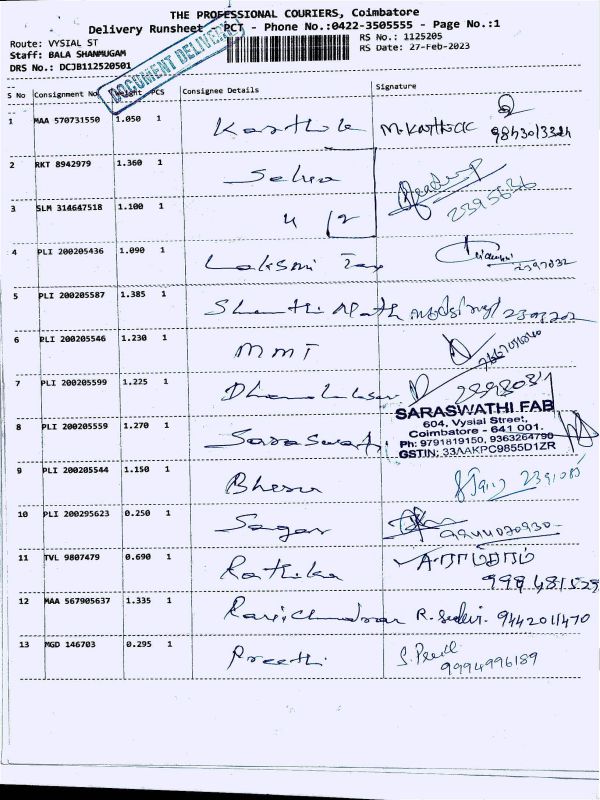 THE PROFESSIONAL COURIERS, Coimbatore
Delivery Runsheet - PCT - Phone No.:0422-3505555 - Page No.:1
Route: VYSIAL ST
RS No.: 1125205
Staff: BALA SHANMUGAM
RS Date: 27-Feb-2023
DRS No.: DCJB112520501
DOCUMENT DELIVERY
S No Consignment No Weight PCS Consignee Details Signature
1 MAA 570731550 1.050 1 M. Karthick
2 RKT 8942979 1.360 1 Selva
3 SLM 314647518 1.100 1 2395636
4 PLI 200205436 1.090 1 Lakshmi Tex 2397032
5 PLI 200205587 1.385 1
6 PLI 200205546 1.230 1 MMT
7 PLI 200205599 1.225 1
SARASWATHI FAB
604, Vysial Street,
8 PLI 200205559 1.270 1 Saraswathi Coimbatore - 641 001.
Ph: 9791819150, 9363264790
GSTIN: 33AAKPC9855D1ZR
9 PLI 200205544 1.150 1
10 PLI 200295623 0.250 1 Sagar 9244070930
11 TVL 9807479 0.690 1 Rathika
12 MAA 567905637 1.335 1 Ravichandran R. 9442011470
13 MGD 146703 0.295 1 Preethi S. Preethi
9994996189